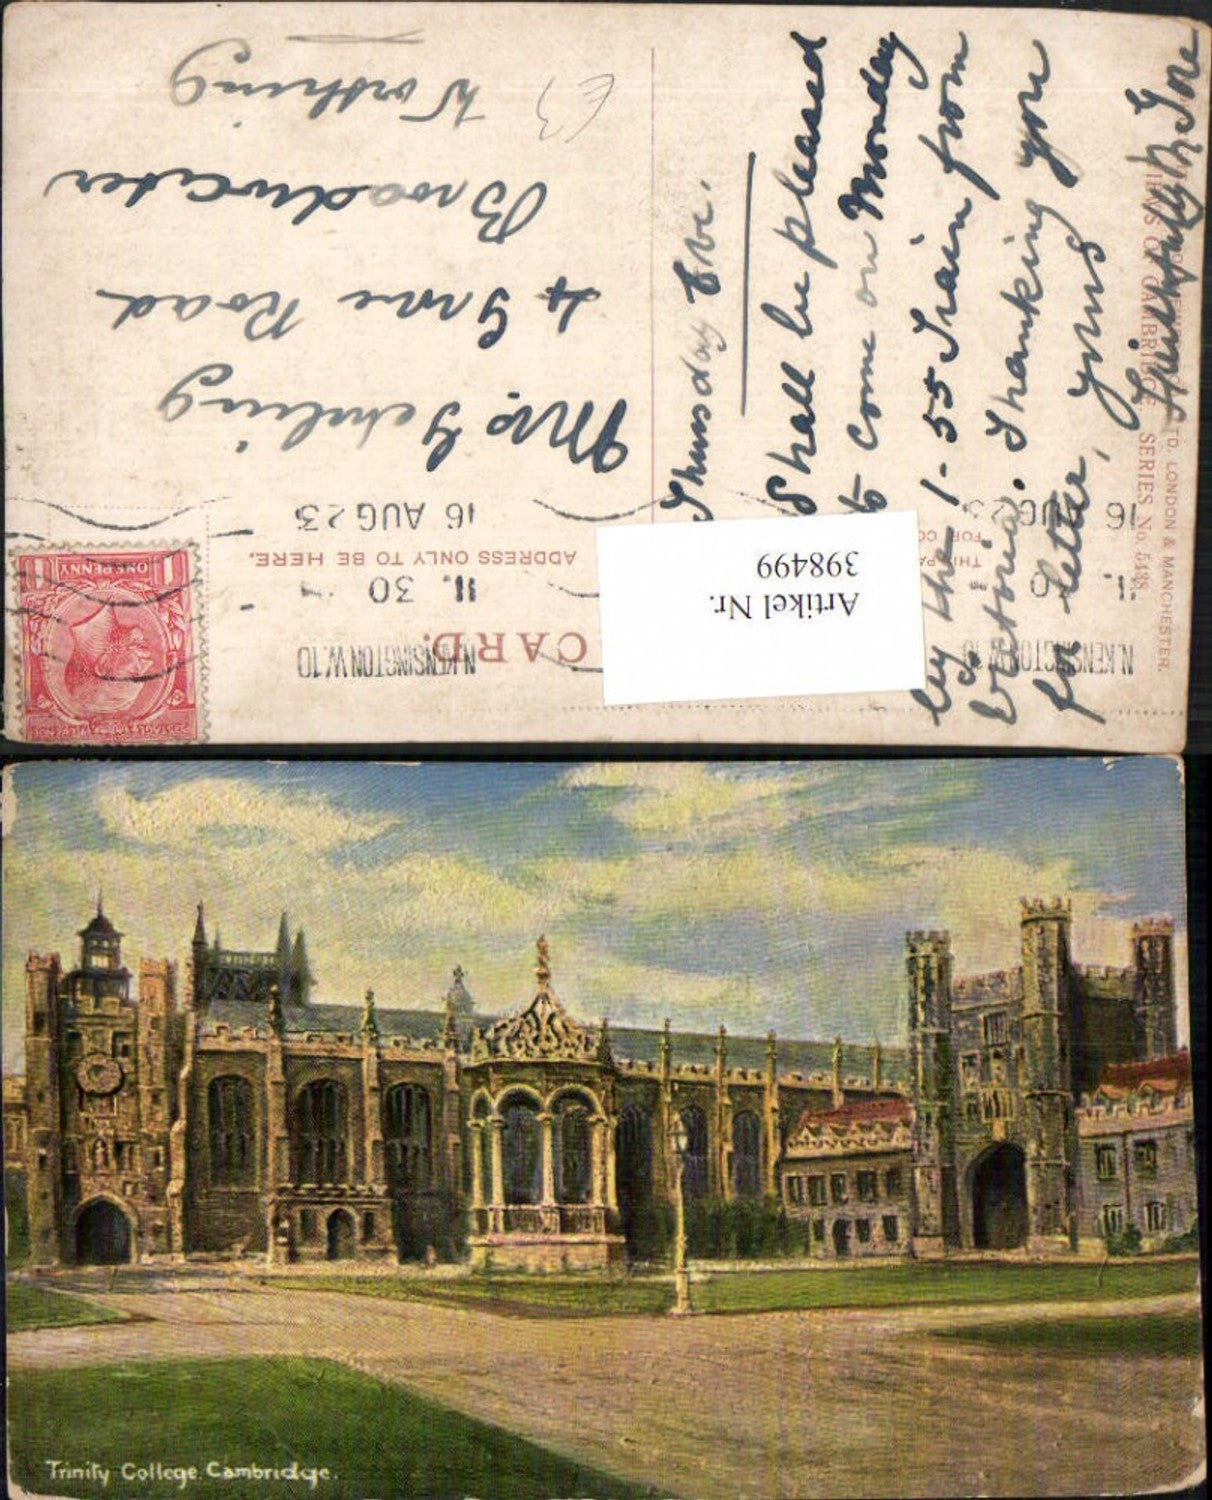 POST CARD.
THIS
FOR CO
ADDRESS ONLY TO BE HERE.
N.KENSINGTON W.10
11. 30
16 AUG 23
N.KENSINGTON W.10
11. 30
16 AUG 23
ONE PENNY
Artikel Nr.
398499
Thursday Eve.
Shall be pleased
to come on Monday
by the 1-55 Train from
Victoria. Thanking you
for letter, yours
Faithfully
Mrs.
4 Grove Road
Broadwater
Worthing
LTD. LONDON & MANCHESTER.
VIEWS OF CAMBRIDGE. SERIES No. 5438
Trinity College. Cambridge.